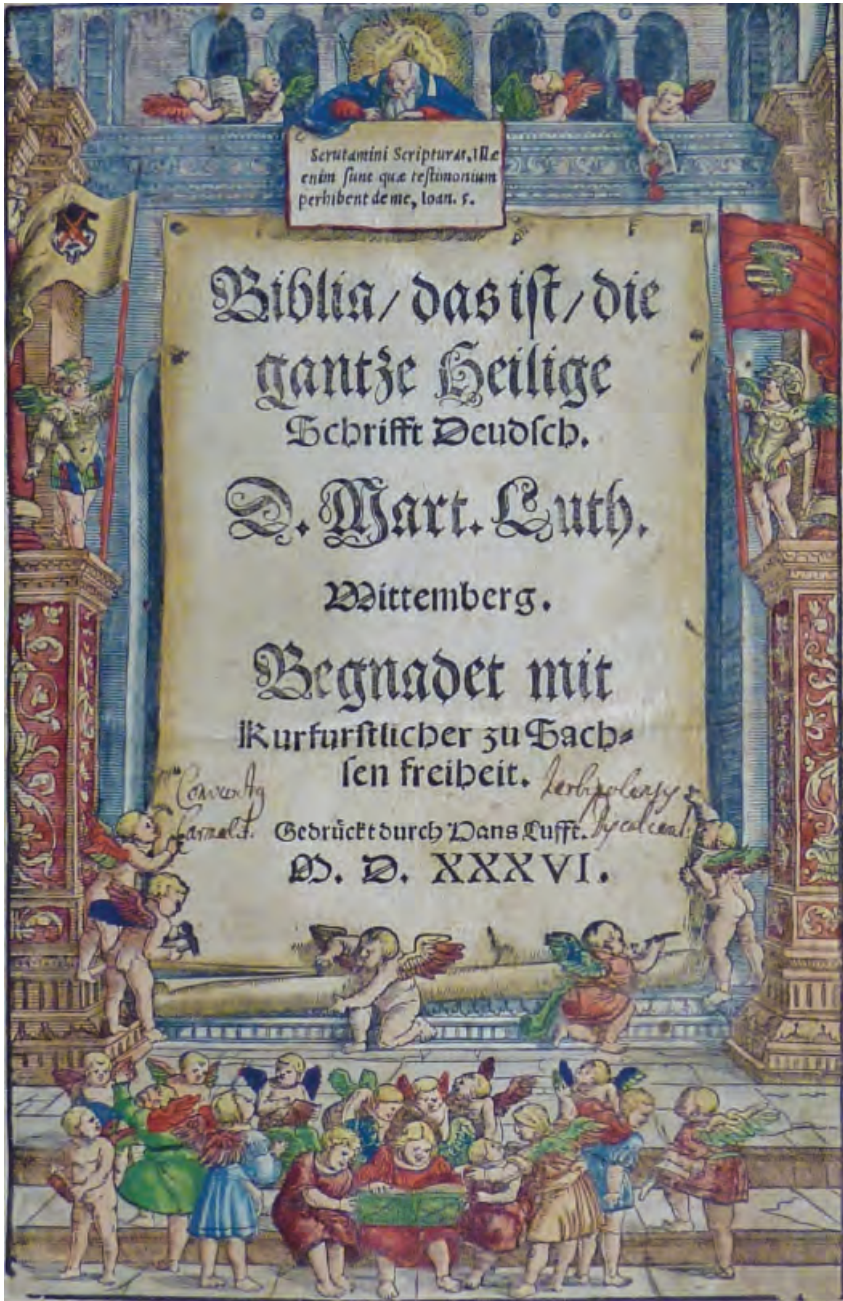 Scrutamini Scripturas, Illæ
enim sunt quæ testimonium
perhibent de me, Ioan. 5.
Biblia/ das ist/ die
gantze Heilige
Schrifft Deudsch.
D. Mart. Luth.
Wittemberg.
Begnadet mit
Kurfurstlicher zu Sach⸗
sen freiheit.
Gedrückt durch Hans Lufft.
M. D. XXXVI.